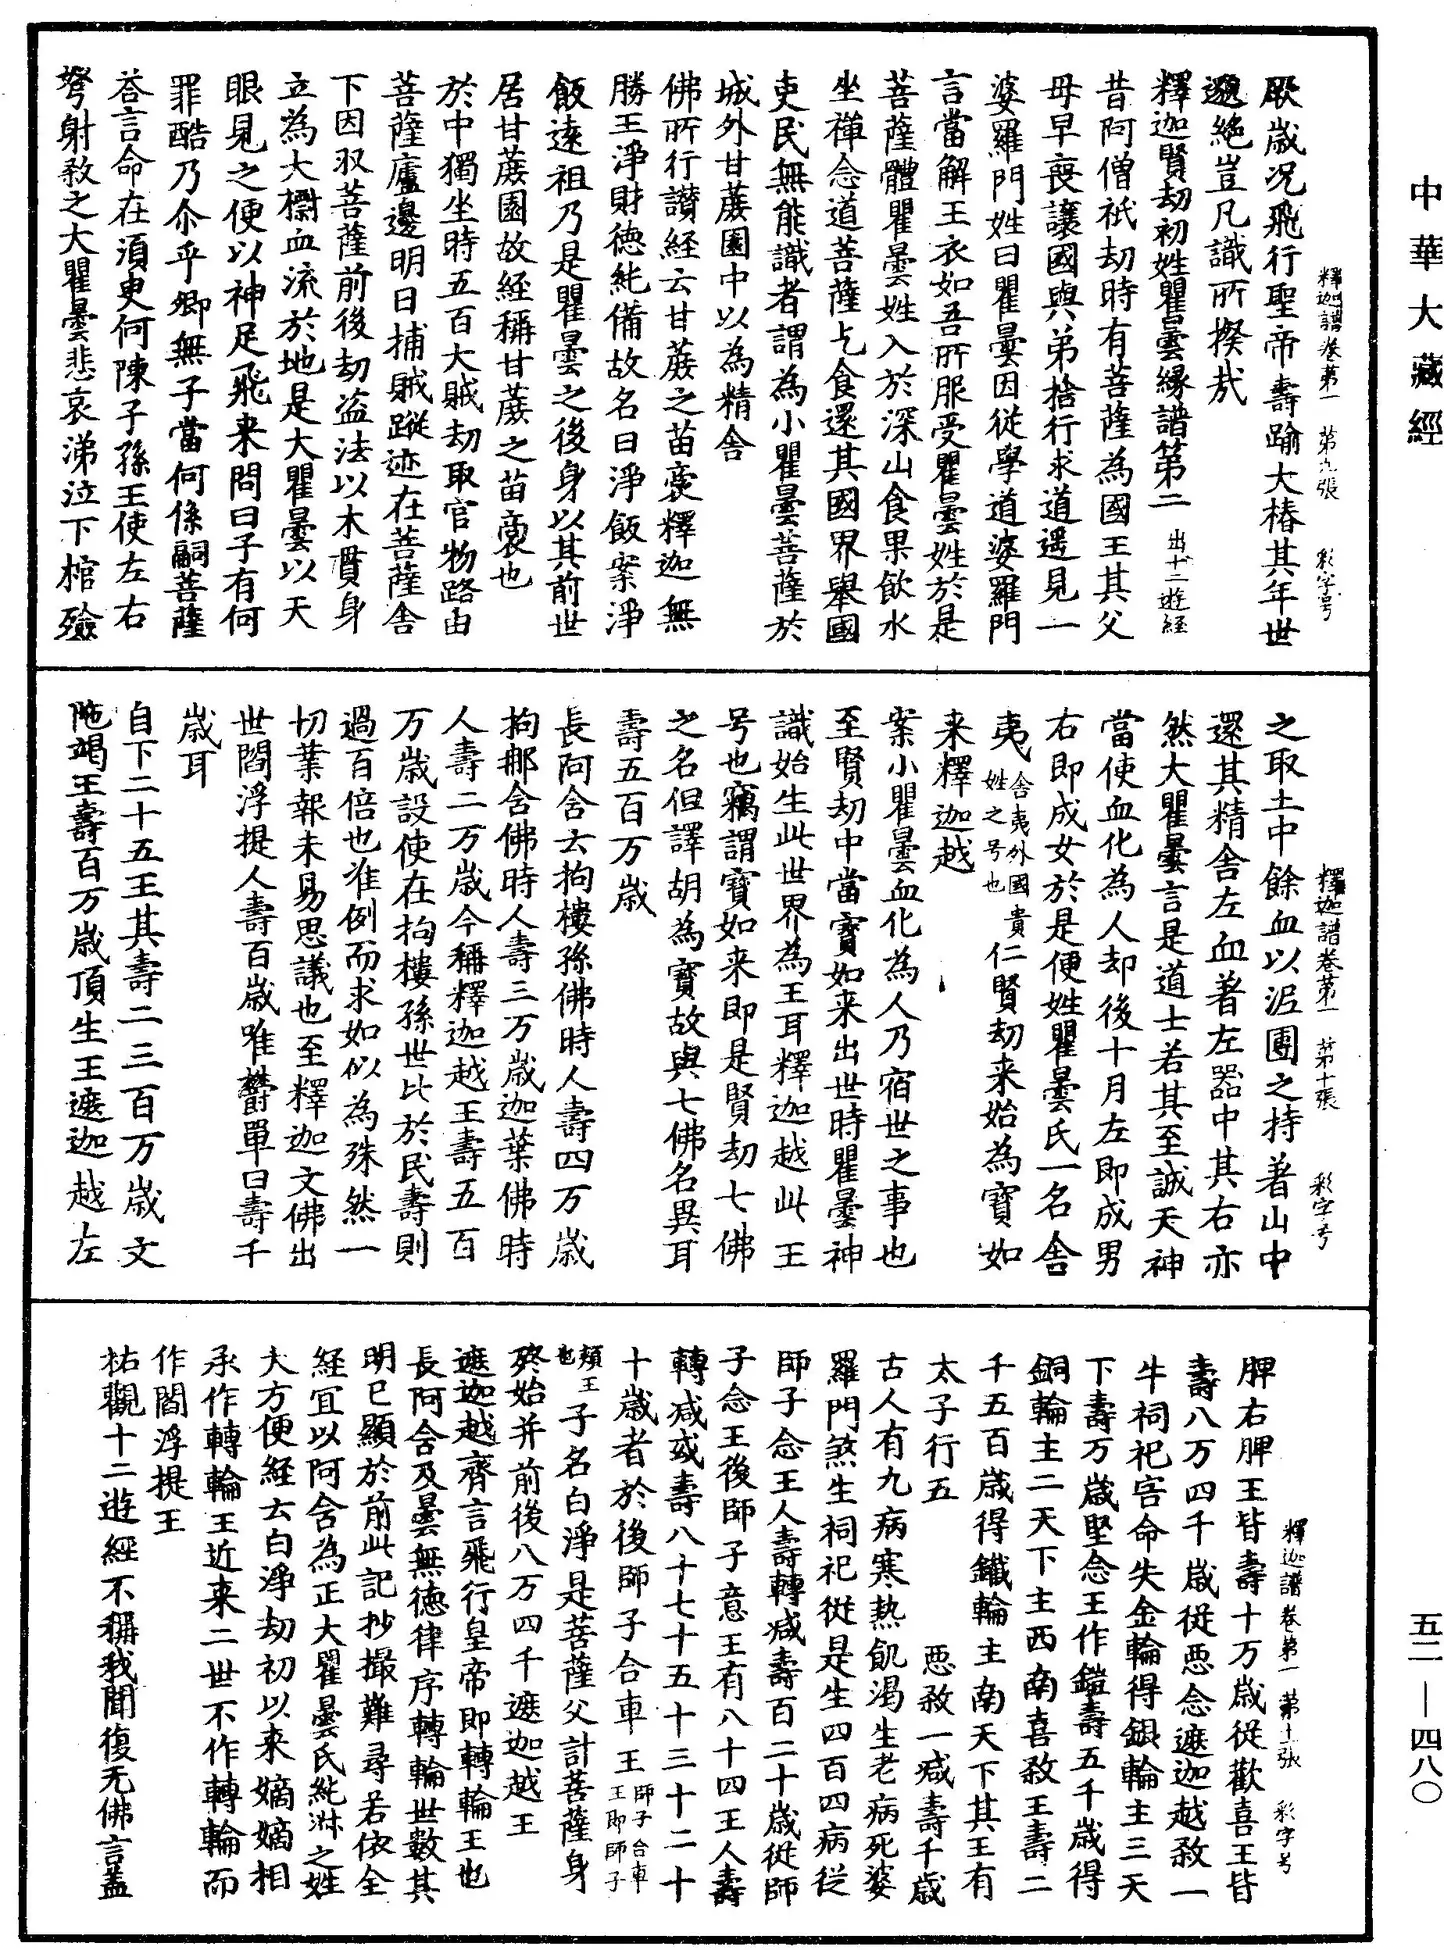 中華大藏經
釋迦譜卷第一　第九張　彩字号
厥歲况飛行聖帝壽踰大椿其年世
邈絶豈凡識所揆哉
釋迦賢劫初姓瞿曇縁譜第二　出十二遊經
昔阿僧祇劫時有菩薩為國王其父
母早喪讓國與弟捨行求道遥見一
婆羅門姓曰瞿曇因從學道婆羅門
言當解王衣如吾所服受瞿曇姓於是
菩薩體瞿曇姓入於深山食果飲水
坐禪念道菩薩乞食還其國界舉國
吏民無能識者謂為小瞿曇菩薩於
城外甘蔗園中以為精舍
佛所行讃経云甘蔗之苗裔釋迦無
勝王淨財德純備故名曰淨飯案淨
飯逺祖乃是瞿曇之後身以其前世
居甘蔗園故経稱甘蔗之苗裔也
於中獨坐時五百大賊劫取官物路由
菩薩廬邊明日捕賊蹤迹在菩薩舍
下因収菩薩前後劫盗法以木貫身
立為大㯓血流於地是大瞿曇以天
眼見之便以神足飛来問曰子有何
罪酷乃尒乎卿無子當何係嗣菩薩
荅言命在須臾何陳子孫王使左右
弩射敘之大瞿曇悲哀涕泣下棺殮
釋迦譜卷第一　第十張　彩字号
之取土中餘血以泥團之持著山中
還其精舍左血著左器中其右亦
然大瞿曇言是道士若其至誠天神
當使血化為人却後十月左即成男
右即成女於是便姓瞿曇氏一名舍
夷　舍夷外國貴姓之号也　仁賢劫来始為寳如
来釋迦越
案小瞿曇血化為人乃宿世之事也
至賢劫中當寳如来出世時瞿曇神
識始生此世界為王耳釋迦越此王
号也竊謂寳如来即是賢劫七佛
之名但譯胡為寳故與七佛名異耳
壽五百万歲
長阿含云拘樓孫佛時人壽四万歲
拘那含佛時人壽三万歲迦葉佛時
人壽二万歲今稱釋迦越王壽五百
万歲設使在拘樓孫世比於民壽則
過百倍也准例而求如似為殊然一
切業報未易思議也至釋迦文佛出
世閻浮提人壽百歲唯欝單曰壽千
歲耳
自下二十五王其壽二三百万歲文
陁竭王壽百万歲頂生王遮迦越左
釋迦譜卷第一　第十一張　彩字号
脾右脾王皆壽十万歲從歡喜王皆
壽八万四千歲從惡念遮迦越敘一
牛祠祀害命失金輪得銀輪主三天
下壽万歲堅念王作鎧壽五千歲得
銅輪主二天下主西南喜敘王壽二
千五百歲得鐵輪主南天下其王有
太子行五　惡敘一减壽千歲
古人有九病寒熱飢渴生老病死婆
羅門煞生祠祀從是生四百四病從
師子念王人壽轉减壽百二十歲從師
子念王後師子意王有八十四王人壽
轉减或壽八十七十五十三十二十
十歲者於後師子合車王　師子合車王即師子
頰王也　子名白淨是菩薩父計菩薩身
終始并前後八万四千遮迦越王
遮迦越齊言飛行皇帝即轉輪王也
長阿含及曇無德律序轉輪世數其
明已顯於前此記抄撮難尋若依全
経宜以阿含為正大瞿曇氏純淋之姓
大方便経云白淨劫初以来嫡嫡相
承作轉輪王近来二世不作轉輪而
作閻浮提王
祐觀十二遊經不稱我聞復无佛言盖
五二—四八〇